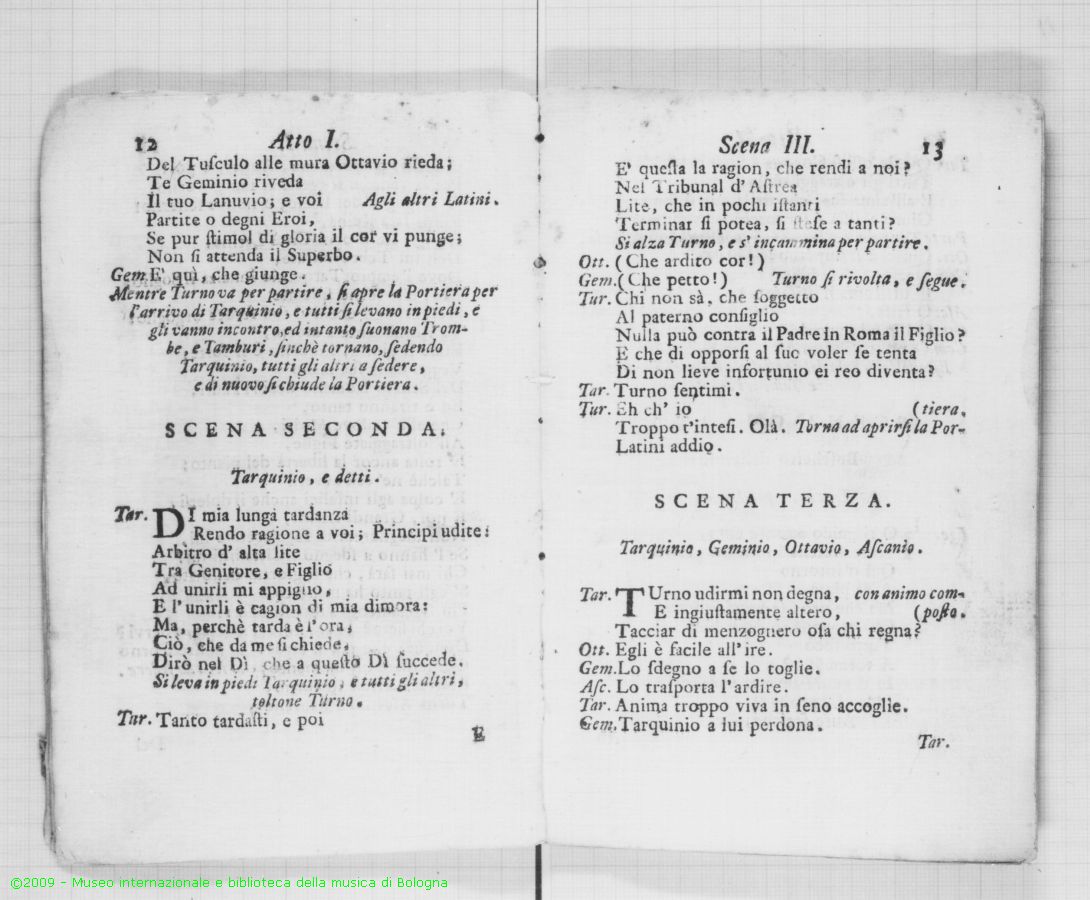 12 Atto I.
Del Tuſculo alle mura Ottavio rieda;
Te Geminio riveda
Il tuo Lanuvio; e voi Agli altri Latini.
Partite o degni Eroi,
Se pur ſtimol di gloria il cor vi punge;
Non ſi attenda il Superbo.
Gem. E' quì, che giunge.
Mentre Turno va per partire, ſi apre la Portiera per
l'arrivo di Tarquinio, e tutti ſi levano in piedi, e
gli vanno incontro, ed intanto ſuonano Trom-
be, e Tamburi, ſinchè tornano, ſedendo
Tarquinio, tutti gli altri a ſedere,
e di nuovo ſi chiude la Portiera.
SCENA SECONDA.
Tarquinio, e detti.
Tar. DI mia lunga tardanza
Rendo ragione a voi; Principi udite:
Arbitro d' alta lite
Tra Genitore, e Figlio
Ad unirli mi appiglio,
E l' unirli è cagion di mia dimora:
Ma, perchè tarda è l' ora,
Ciò, che da me ſi chiede,
Dirò nel Dì, che a queſto Dì ſuccede.
Si leva in piedi Tarquinio, e tutti gli altri,
toltone Turno.
Tur. Tanto tardaſti, e poi
E
Scena III. 13
E' queſta la ragion, che rendi a noi?
Nel Tribunal d' Aſtrea
Lite, che in pochi iſtanti
Terminar ſi potea, ſi ſteſe a tanti?
Si alza Turno, e s' incammina per partire.
Ott. (Che ardito cor!)
Gem. (Che petto!) Turno ſi rivolta, e ſegue.
Tur. Chi non sà, che ſoggetto
Al paterno conſiglio
Nulla può contra il Padre in Roma il Figlio?
E che di opporſi al ſuo voler ſe tenta
Di non lieve infortunio ei reo diventa?
Tar. Turno ſentimi.
Tur. Eh ch' io (tiera.
Troppo t'inteſi. Olà. Torna ad aprirſi la Por-
Latini addio.
SCENA TERZA.
Tarquinio, Geminio, Ottavio, Aſcanio.
Tar. TUrno udirmi non degna, con animo com-
E ingiuſtamente altero, (poſto.
Tacciar di menzognero oſa chi regna?
Ott. Egli è facile all' ire.
Gem. Lo ſdegno a ſe lo toglie.
Aſc. Lo traſporta l' ardire.
Tar. Anima troppo viva in ſeno accoglie.
Gem. Tarquinio a lui perdona.
Tar.
©2009 - Museo internazionale e biblioteca della musica di Bologna